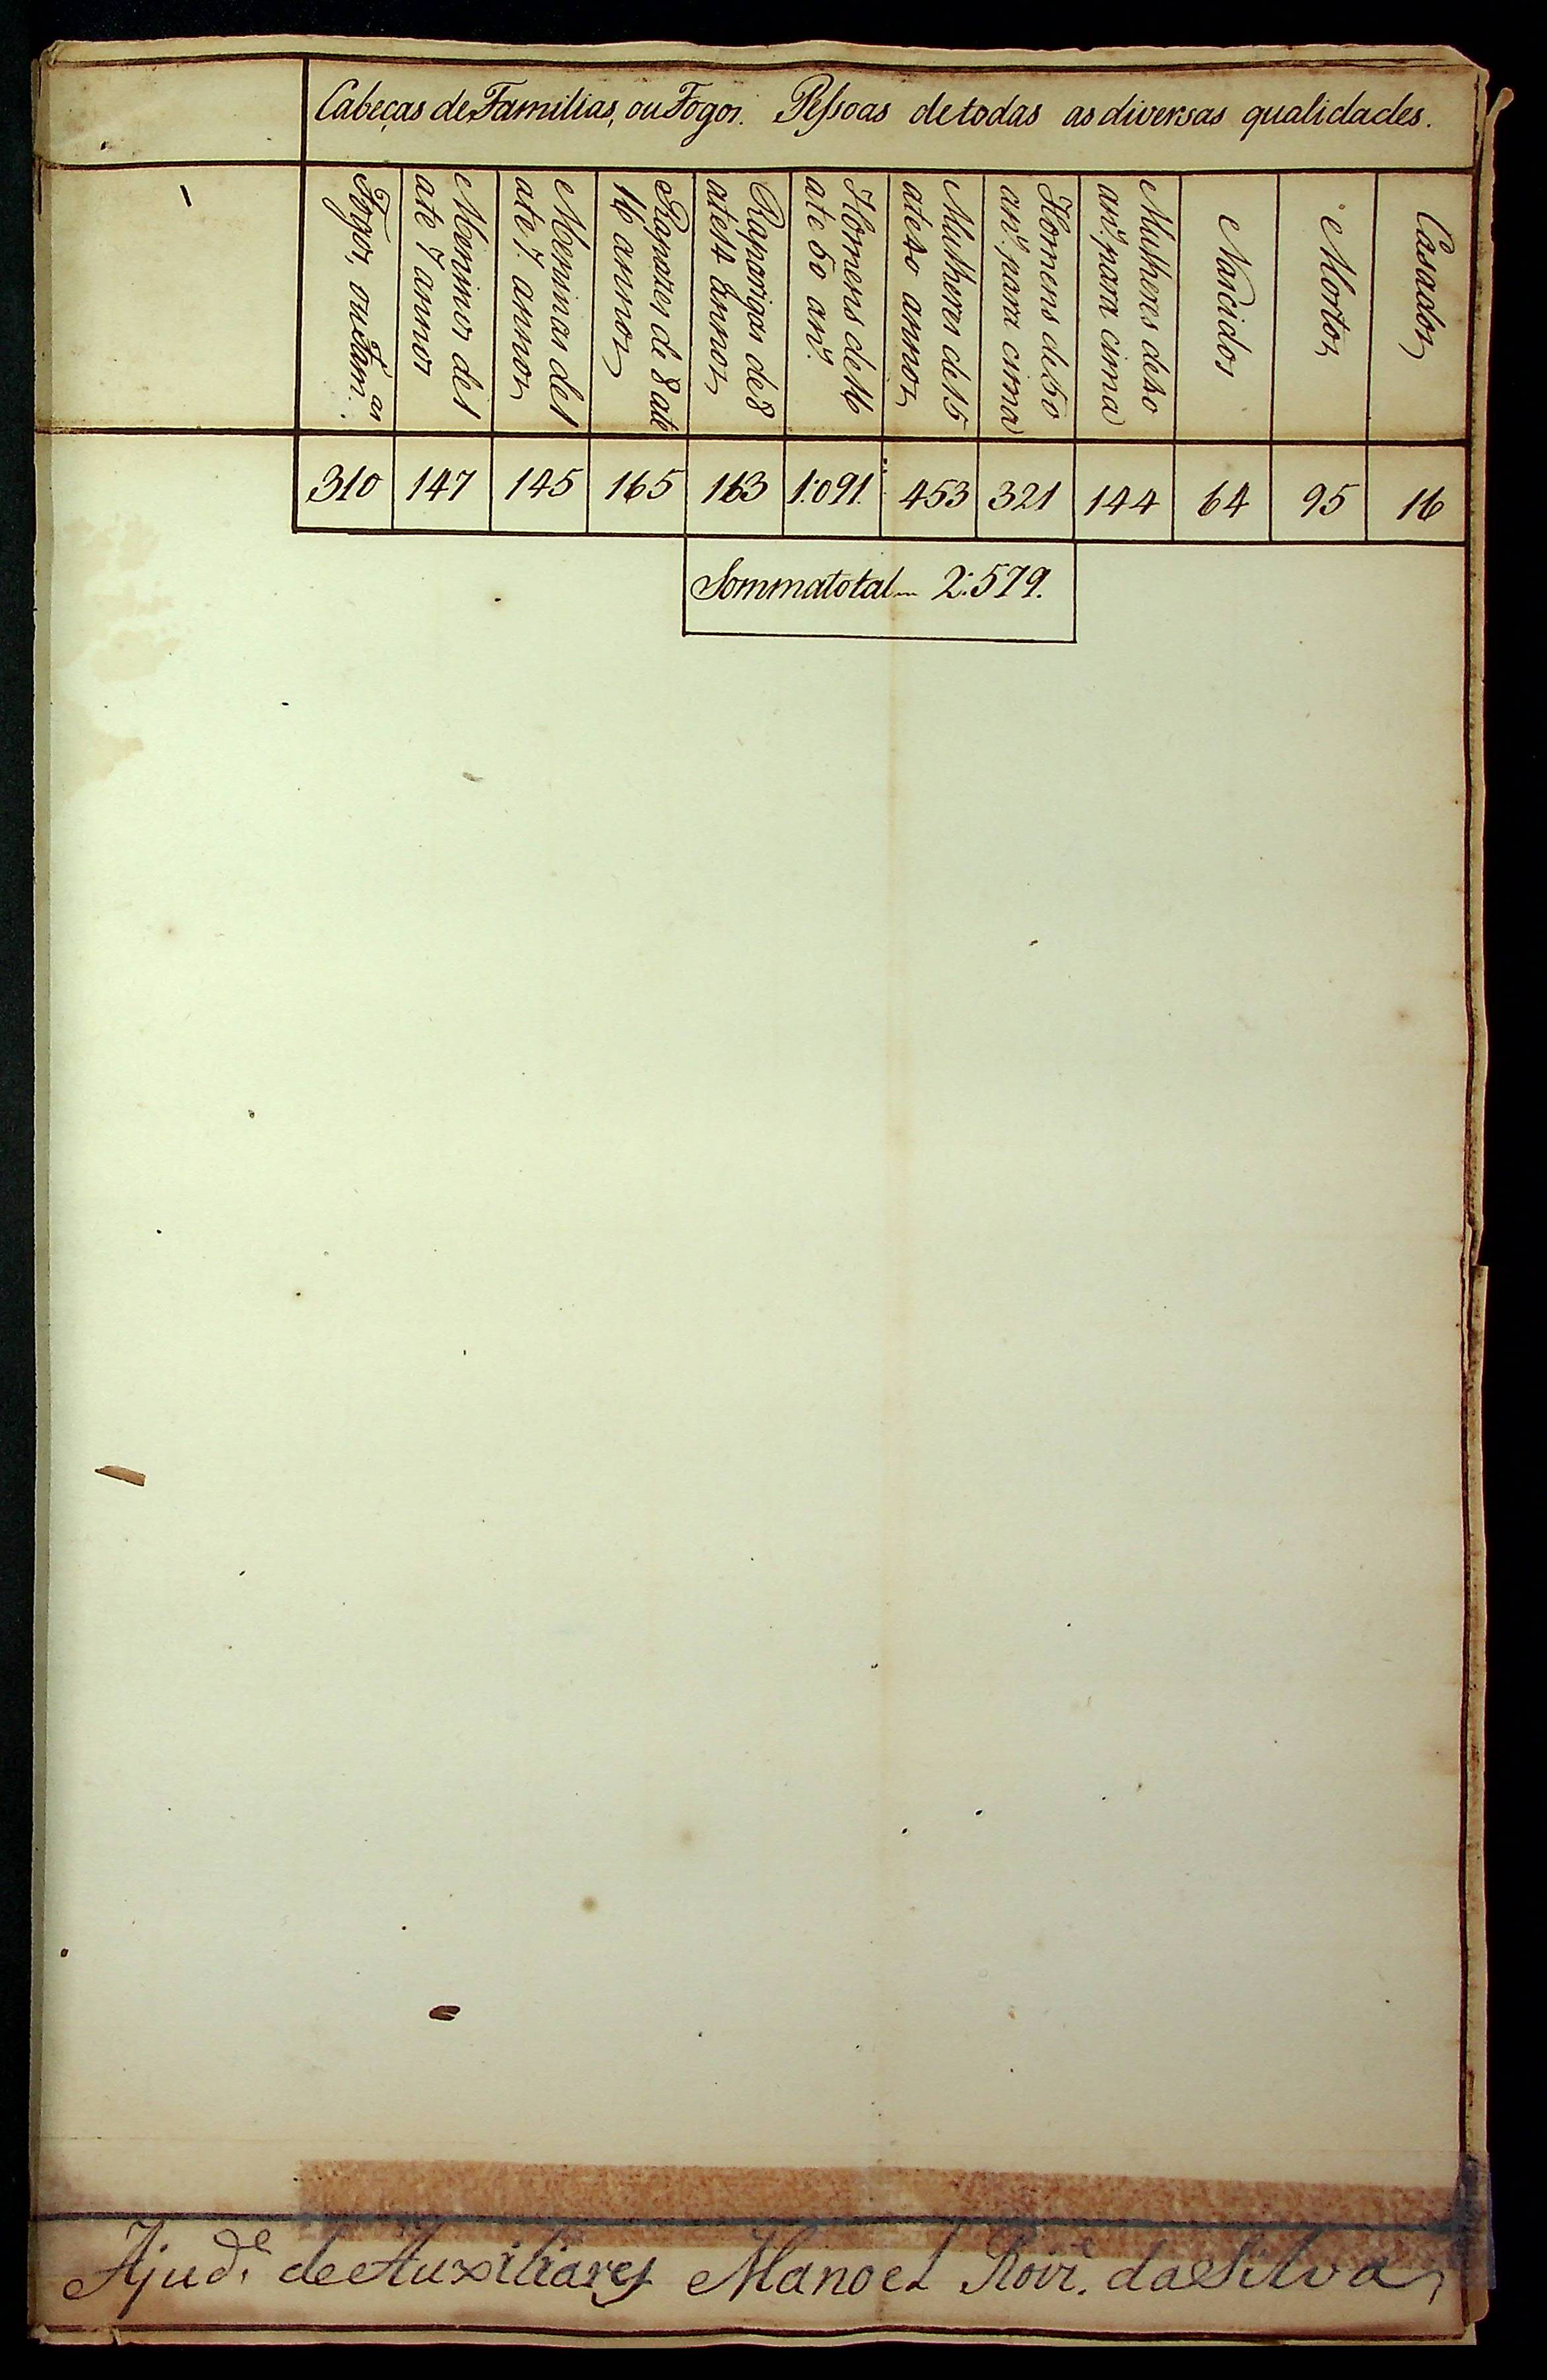 Cabeças de Familias, ou Fogos. Peſsoas de todas as diversas qualidades.
Fogos, ou Fam.as
Meninos de 1
até 7 annos
Meninas de 1
até 7. annos
Rapazes de 8 até
16 annos
Raparigas de 8
até 14 annos
Homens de 16
até 50 an.s
Mulheres de 15
até 40 annos
Homens de 50
an.s para cima
Mulheres de 40
an.s para cima
Nascidos
Mortos
Casados
310 147 145 165 163 1:091. 453 321 144 64 95 16
Somma total 2:579.
Ajud.e de Auxiliares Manoel Roiz. da Silva